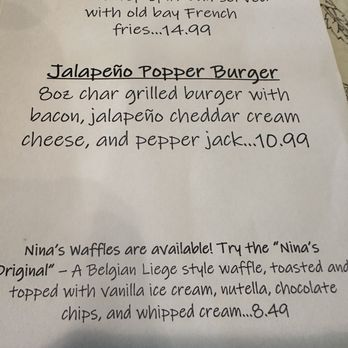 with old bay French
fries...14.99
Jalapeño Popper Burger
8oz char grilled burger with
bacon, jalapeño cheddar cream
cheese, and pepper jack...10.99
Nina's Waffles are available! Try the "Nina's
Original" – A Belgian Liege style waffle, toasted and
topped with vanilla ice cream, nutella, chocolate
chips, and whipped cream...8.49